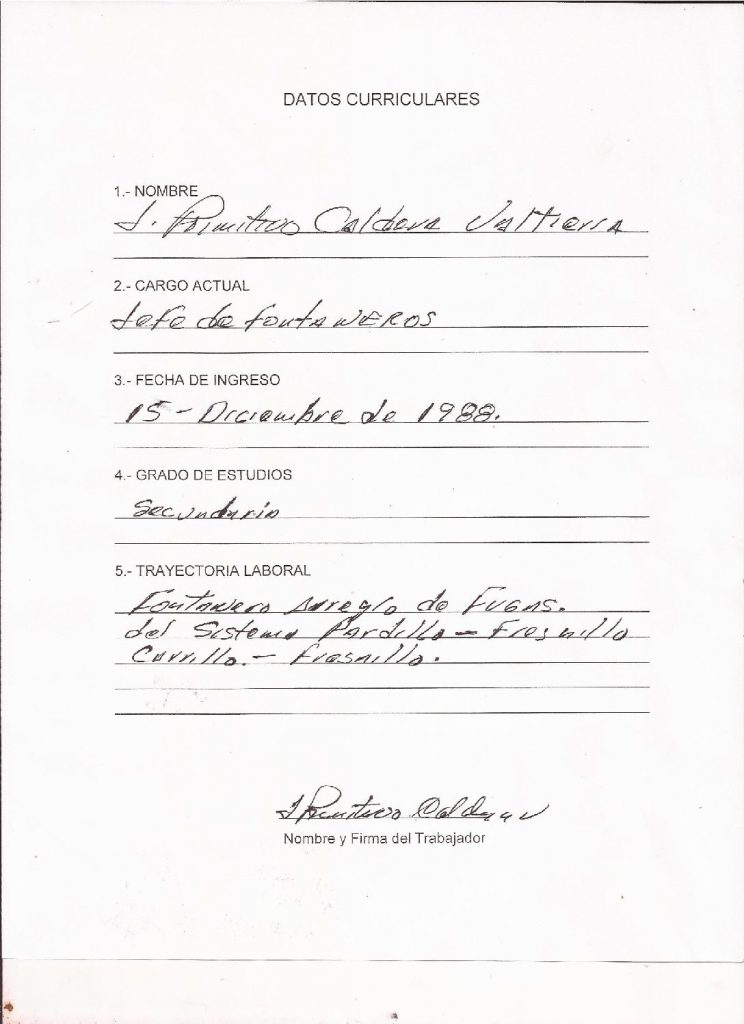 DATOS CURRICULARES
1.- NOMBRE
J. Primitivo Caldera Valtierra
2.- CARGO ACTUAL
Jefe de fontaNEROS
3.- FECHA DE INGRESO
15 - Diciembre de 1988.
4.- GRADO DE ESTUDIOS
Secundaria
5.- TRAYECTORIA LABORAL
Fontanero Arreglo de Fugas.
del Sistema Pardillo - Fresnillo
Carrillo. - Fresnillo.
J Primitivo Caldera V
Nombre y Firma del Trabajador